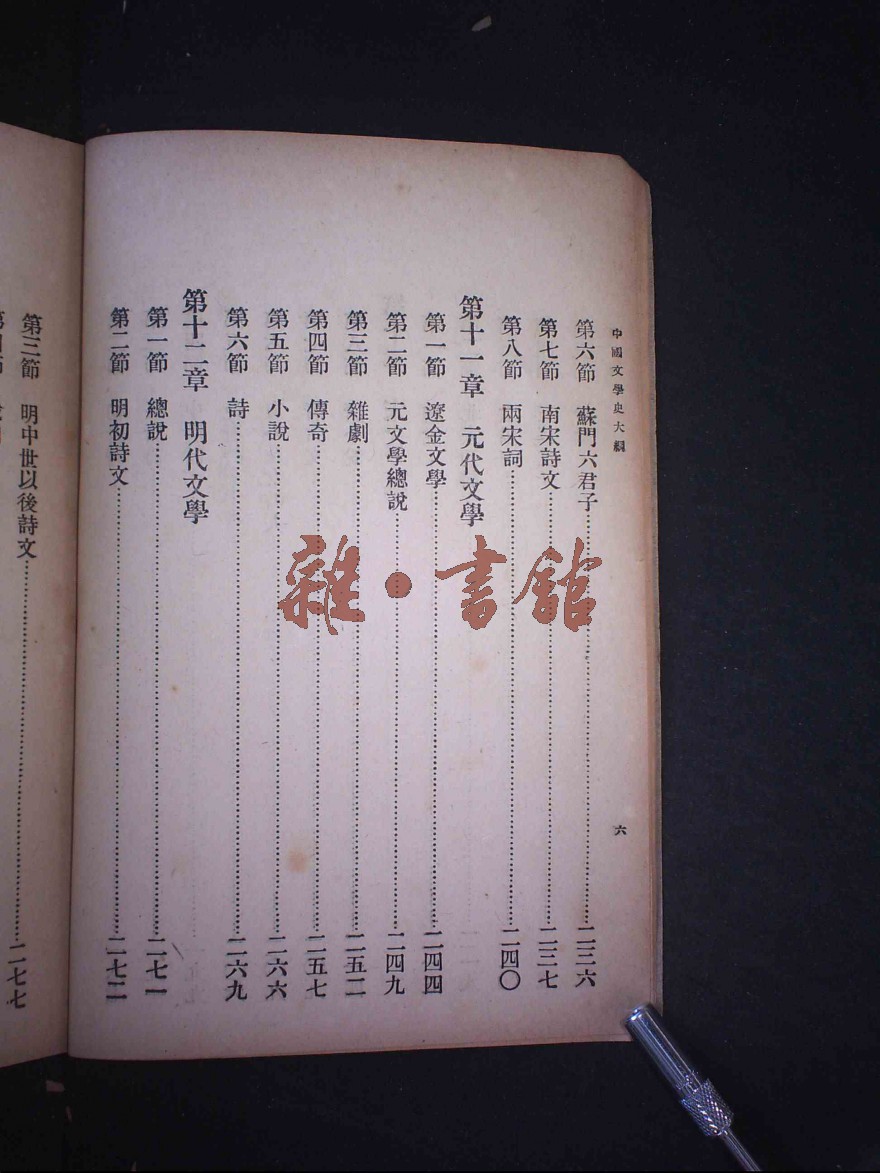 中國文學史大綱
六
第六節 蘇門六君子……二三六
第七節 南宋詩文……二三七
第八節 兩宋詞……二四〇
第十一章 元代文學
第一節 遼金文學……二四四
第二節 元文學總說……二四九
第三節 雜劇……二五二
第四節 傳奇……二五七
第五節 小說……二六六
第六節 詩……二六九
第十二章 明代文學
第一節 總說……二七一
第二節 明初詩文……二七二
第三節 明中世以後詩文……二七七
雜·書館